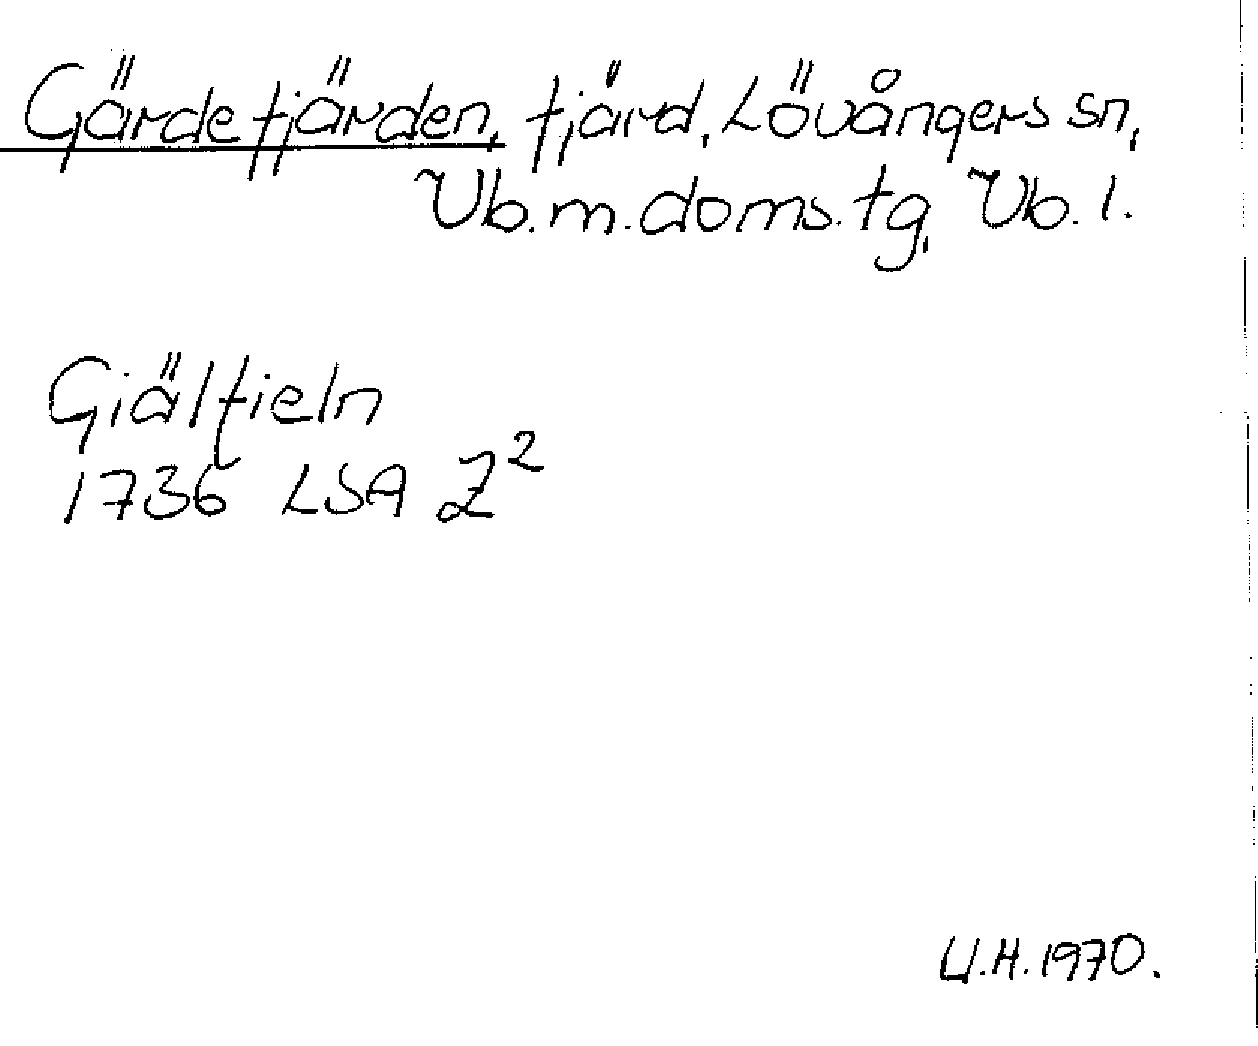 Gärdefjärden, fjärd, Lövångers sn,
Vb.m.doms.tg, Vb.l.
Giälfieln
1736 LSA Z²
U.H.1970.